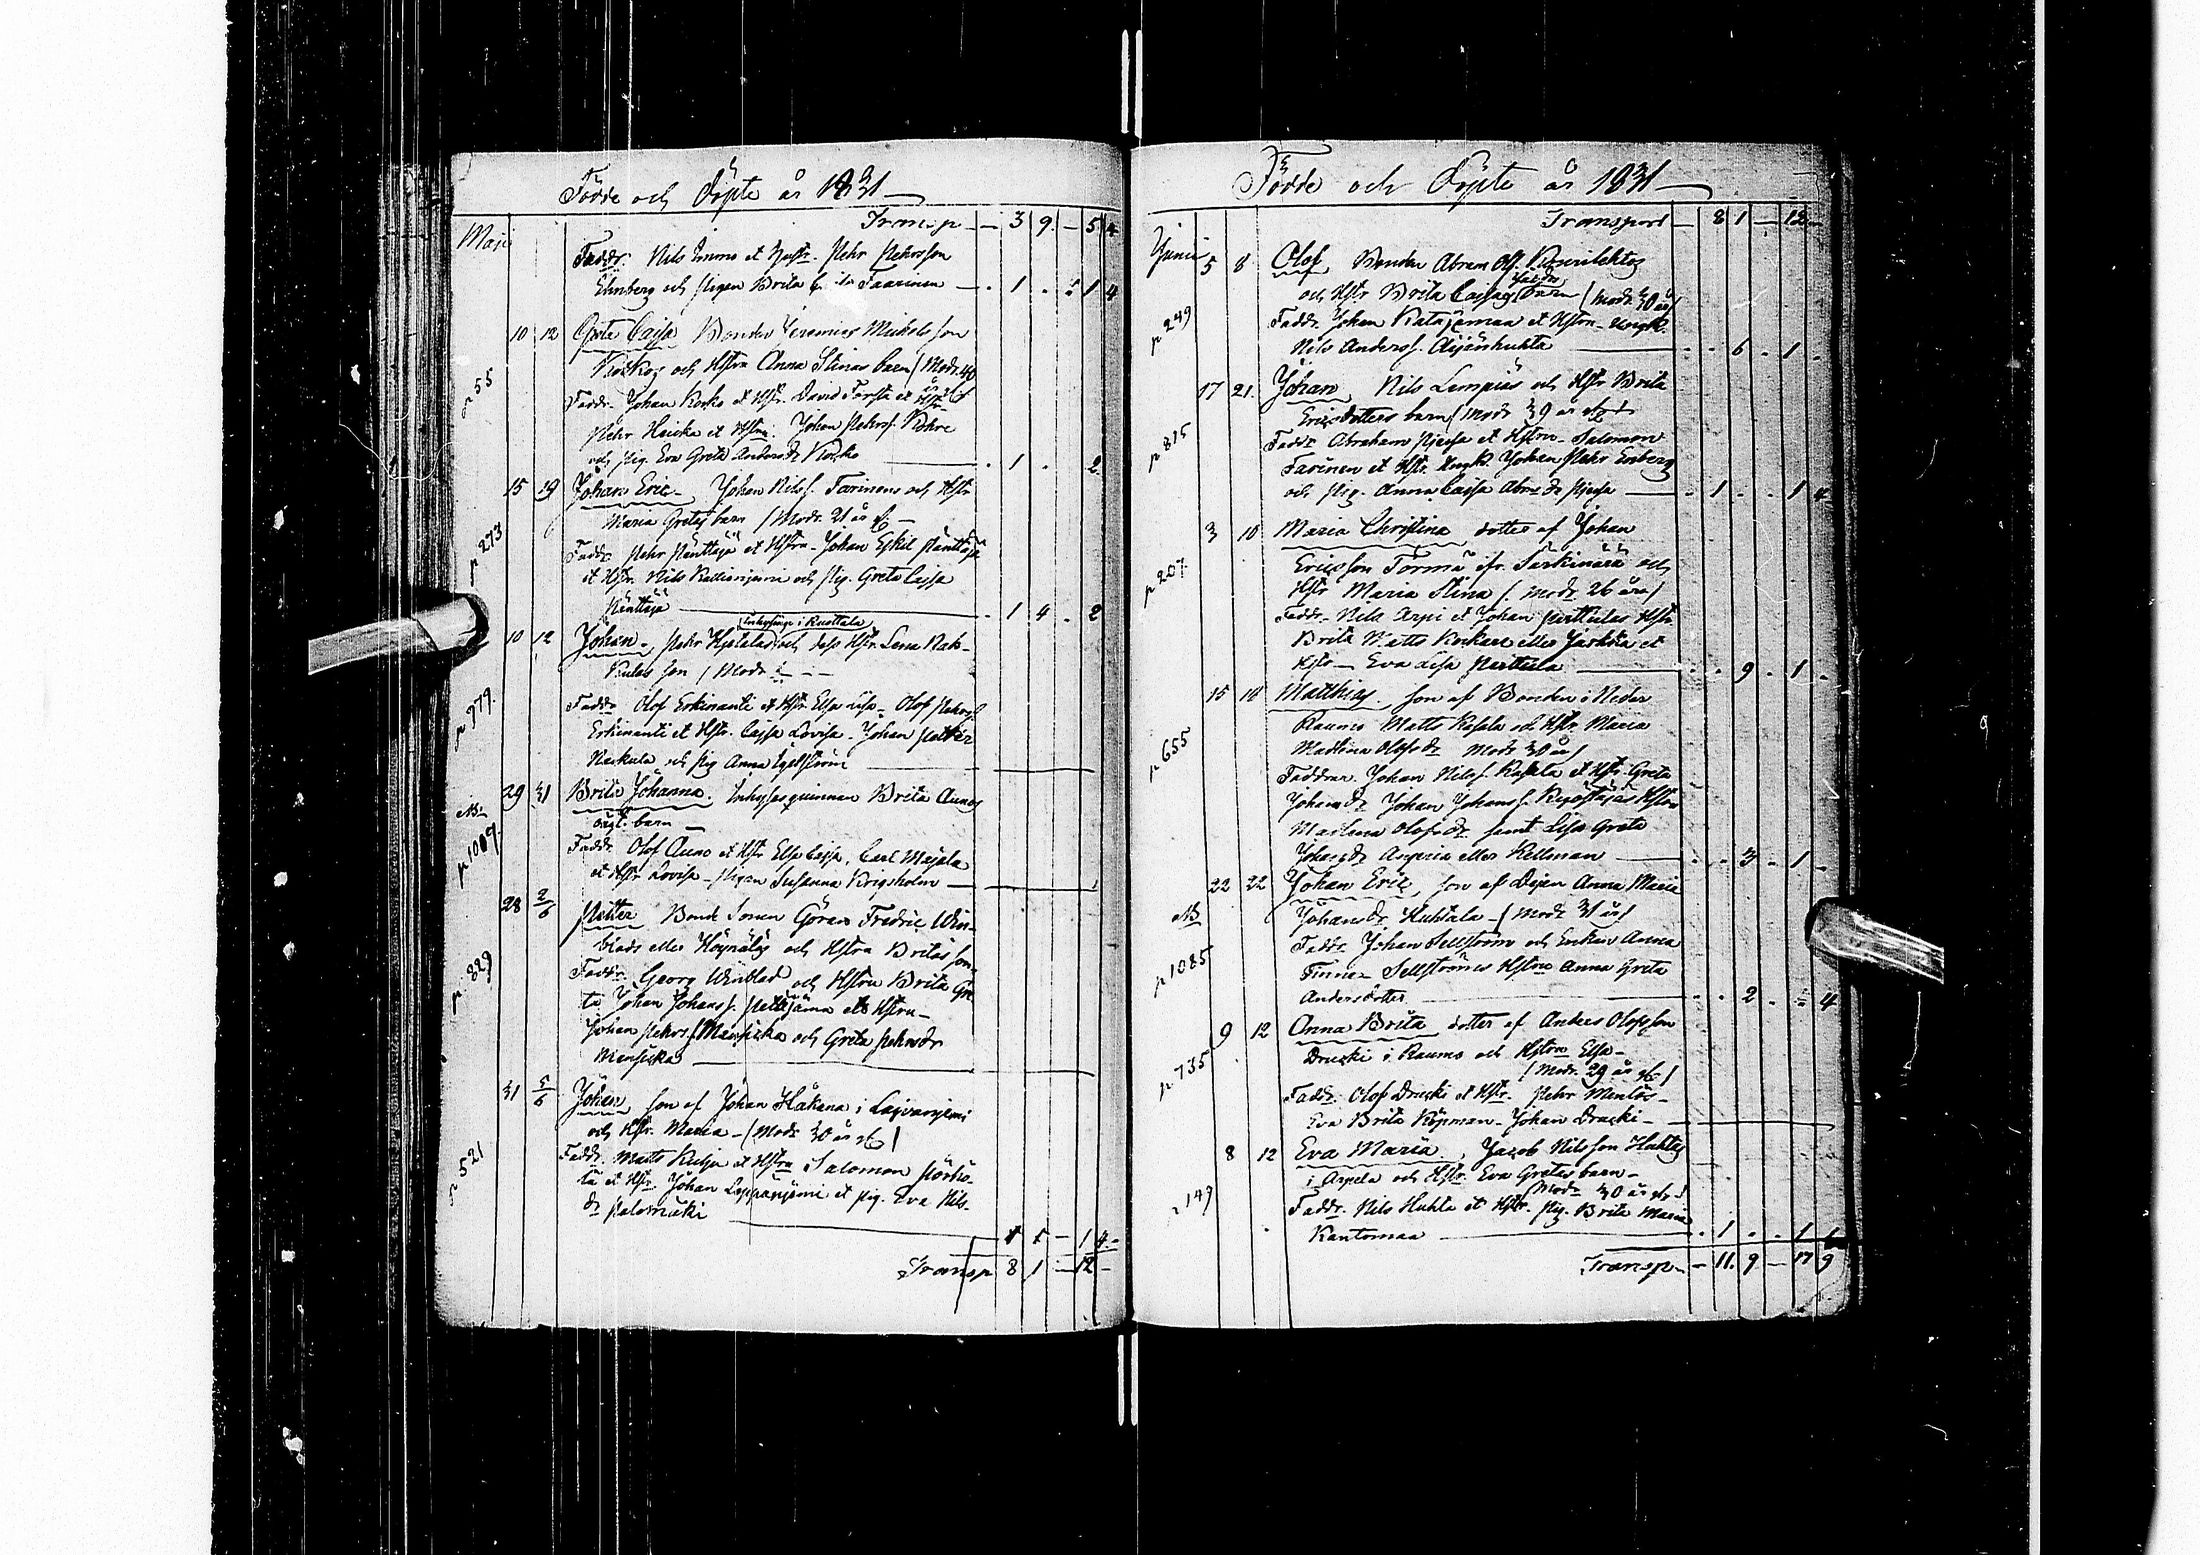 Födde och Döpte år 1831
Transp — 3 9 — 5 4
Maji
Faddr. Nils Immo et Hustr. Pehr Pehrsson
Ehnberg och Pigan Brita Taarinen — 1 1 4
10 12 Greta Cajsa, Bonden Jeremias Mickelsson
Kiosko och Hstru Anna Stinas barn / Modr. 40
p 55 Faddr. Johan Korko et Hstr. David Försti et Hstr
Pehr Heicka et Hstru. Johan Pehrs. Kokre
och Pig. Eva Greta Andersdr Kiosko — 1 2
15 19 Johan Eric. Johan Nilss. Tarinens och Hstr
Maria Gretas barn / Modr. 21 år
p 273 Faddr Pehr Pänttäjä et Hstru. Johan Eskil Pänttäjä
et Hstr. Nils Kallioniemi och Pig. Greta Cajsa
Pänttäjä — 1 4 2
Inhysinge i Ruottala
10 12 Johan. Pehr och dess Hstr. Lena Rak-
kulas son / Modr —
p 979. Faddr Olof Erkinanti et Hstr. Elsa Lisa. Olof Pehrss.
Erkinanti et Hstr. Cajsa Lovisa. Johan Petter
Raekula och Pig Anna Egelström
29 31 Brita Johanna. Inhysesquinnan Brita Aunos
NB oägt. barn —
p 1009. Faddr. Olof Auno et Hstr Elsa Cajsa, Carl Majala
et Hstr Lovisa — Pigan Susanna Brigsholm —
28 2/6 Petter Bonde Sonen Göran Fredric Win-
blads eller Höynälas och Hstru Britas son
p 829 Faddr. Georg Winblad och Hstru Brita Gre
ta Johan Johanss. et Hstru —
Johan Pehrs. Mansicka och Greta Pehrsdr
Mansicka —
31 5/6 Johan, son af Johan Håkana i Laivaniemi
och Hstr. Maria — / Modr 30 år
p 521 Faddr. Matts Kulju et Hstru Salomon Pörhö-
lä et Hstr. Johan Leppäniemi et Pig. Eva Nils-
dr Palomäki
4 5 — 1 4 —
Transp 8 1 — 12 —
Födde och Döpte år 1831
Transport — 8 1 — 12 —
Junii 5 8 Olof, Bonden Abram Olofs.
och Hstr Brita Cajsas barn / Modr. 30 år /
p 249 Faddr. Johan Katajamaa et Hstru. Ungk.
Nils Anderss. Äijänhuhta — 6 — 1 —
17 21. Johan, Nils Lempiäs och Hstr Brita
Ericsdotters barn / Modr 39 år
p 815 Faddr Abraham et Hstru. Salomon
Tarinen et Hstr. Ungk. Johan Pehr Enberg
och Pig. Anna Cajsa Abrsdr — 1 — 1 4
3 10 Maria Christina dotter af Johan
Ericsson Törmä ifr. Särkinärä och
p 207. Hstr Maria Stina /. Modr. 26 åra /
Faddr. Nils Arpi et Johan Perttulas Hstr
Brita Matts Korkare eller et
Hstr — Eva Lisa Perttula — 9 — 1 —
15 18 Matthias. son af Bonden i Neder
Raumo Matts Rasala och Hstr. Maria
p 655 Madlena Olofsdr Modr 30 år /
Faddrar. Johan Nilss. Rasala et Hstr. Greta
Johansdr Johan Johanss. Hstru
Madlena Olofsdr samt Lisa Greta
Johansdr Angeria eller Kellman — 3 — 1 —
22 22 Johan Eric, son af Dejan Anna Maria
NB Johansdr. Huhtala — / Modr 31 år /
p 1085 Faddr. Johan Sellström och Enkan Anna
Finne — Sellströms Hstru Anna Greta
Andersdotter — 2 — 4
9 12 Anna Brita dotter af Anders Olofsson
Drucki i Raumo och Hstru Elsa —
p 735 / Modr. 29 år /
Faddr. Olof Drucki et Hstr. Pehr Mentös —
Eva Brita Köpman. Johan Drucki —
8 12 Eva Maria, Jacob Nilsson Huhtas
i Arpela och Hstr. Eva Gretas barn —
p 149 Modr 30 år
Faddr. Nils Huhta et Hstr. Pig. Brita Maria
Kantomaa — 1 — 1
Transp — 11. 9 — 17 9